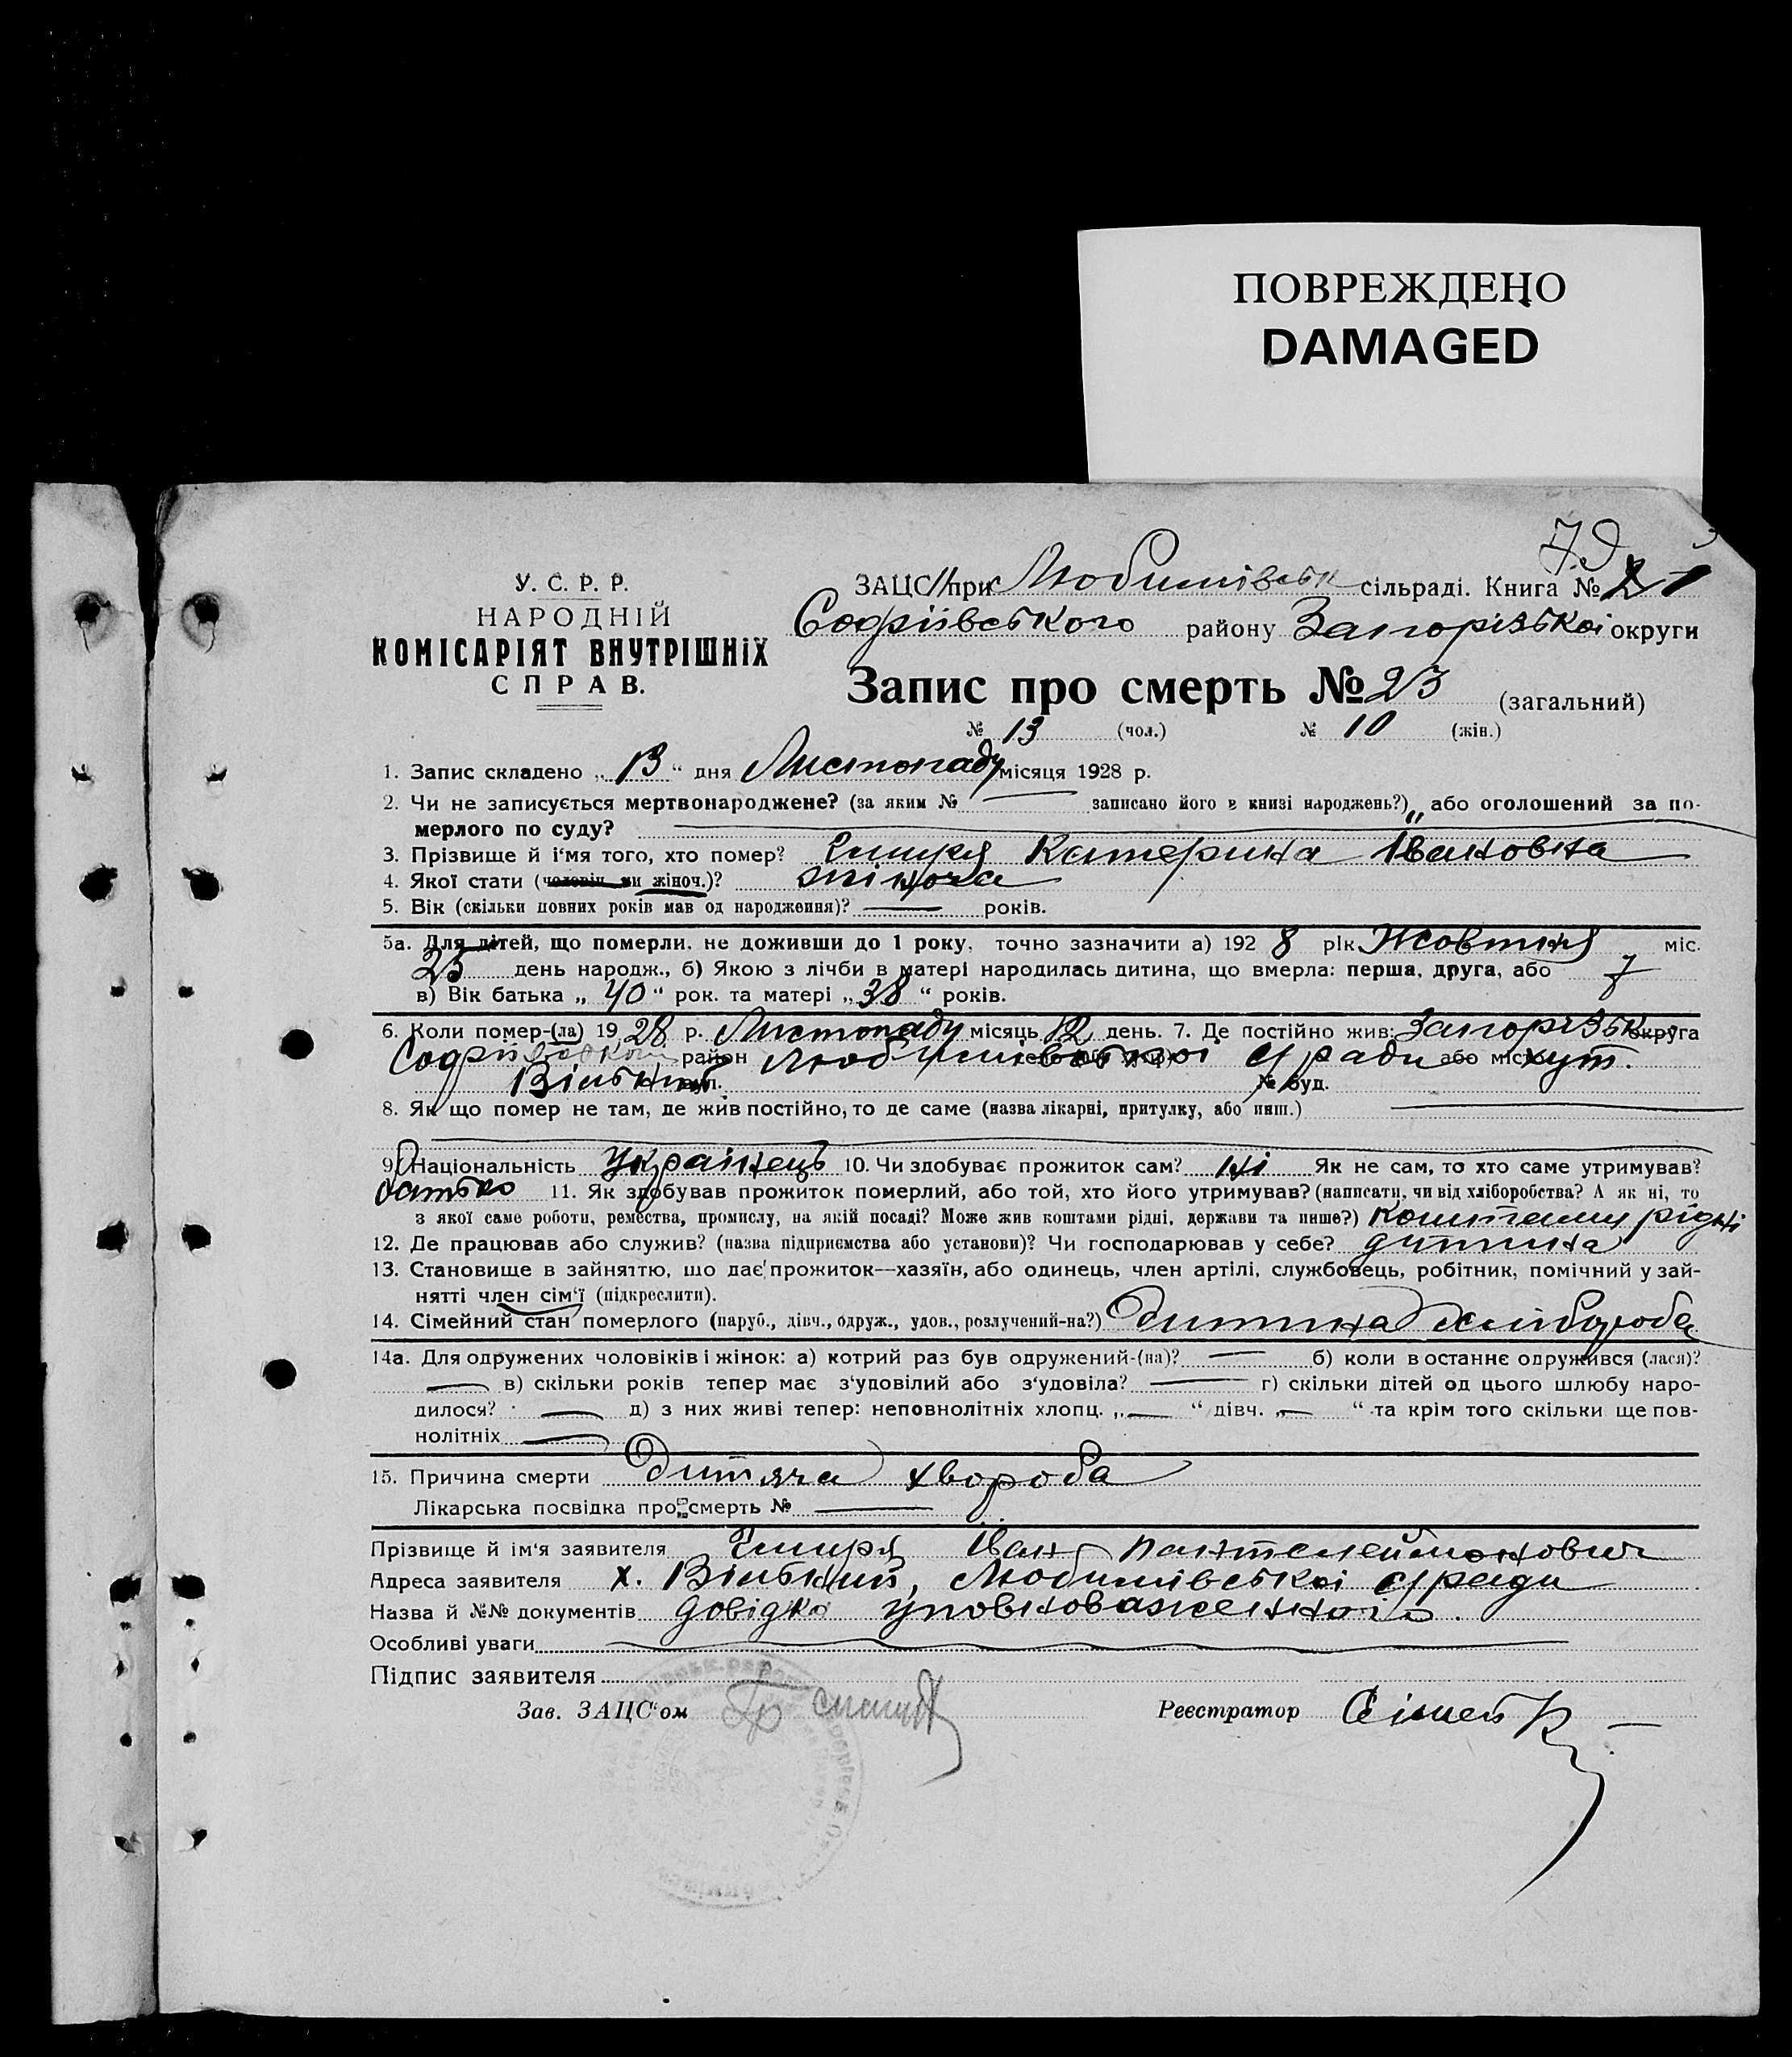 ПОВРЕЖДЕНО
DAMAGED
У. С. Р. Р.
НАРОДНІЙ
КОМІСАРІЯТ ВНУТРІШНІХ
СПРАВ.
ЗАЦС при Любимівськ сільраді. Книга №
Софіївського району Запорізької округи
Запис про смерть № 23 (загальний)
№ 13 (чол.) № 10 (жін.)
1. Запис складено „ 13 “ дня Листопаду місяця 1928 р.
2. Чи не записується мертвонароджене? (за яким № — записано його в книзі народжень?) „ або оголошений за по-
мерлого по суду?
3. Прізвище й і'мя того, хто помер? Катерина Івановна
4. Якої стати (чоловіч. чи жіноч.)? жіноча
5. Вік (скільки повних років мав од народження)? — років.
5а. Для дітей, що померли, не доживши до 1 року, точно зазначити а) 1928 рік Жовтня міс.
25 день народж., б) Якою з лічби в матері народилась дитина, що вмерла: перша, друга, або 7
в) Вік батька „ 40 “ рок. та матері „ 38 “ років.
6. Коли помер-(ла) 1928 р. Листопаду місяць 12 день. 7. Де постійно жив: Запорізьк округа
Софіївськом район Любимівської с/ради або місто хут.
Вільний вул. № буд.
8. Як що помер не там, де жив постійно, то де саме (назва лікарні, притулку, або инш.) —
9. Національність Українець 10. Чи здобуває прожиток сам? ні Як не сам, то хто саме утримував?
батько 11. Як здобував прожиток померлий, або той, хто його утримував? (написати, чи від хліборобства? А як ні, то
з якої саме роботи, ремества, промислу, на якій посаді? Може жив коштами рідні, держави та инше?) коштами рідні
12. Де працював або служив? (назва підприємства або установи)? Чи господарював у себе? дитина
13. Становище в зайняттю, що дає прожиток—хазяїн, або одинець, член артілі, службовець, робітник, помічний у зай-
нятті член сім'ї (підкреслити).
14. Сімейний стан померлого (паруб., дівч., одруж., удов., розлучений-на?) Дитина хлібороба
14а. Для одружених чоловіків і жінок: а) котрий раз був одружений-(на)? — б) коли в останнє одружився (лася)?
— в) скільки років тепер має з'удовілий або з'удовіла? — г) скільки дітей од цього шлюбу наро-
дилося? — д) з них живі тепер: неповнолітніх хлопц. „ — “ дівч. „ — “ та крім того скільки ще пов-
нолітніх —
15. Причина смерти Дитяча хвороба
Лікарська посвідка про смерть № —
Прізвище й ім'я заявителя Іван Пантелеймонович
Адреса заявителя х. Вільний, Любимівської с/ради
Назва й №№ документів довідка уповноваженного.
Особливі уваги
Підпис заявителя
Зав. ЗАЦС'ом
Реєстратор